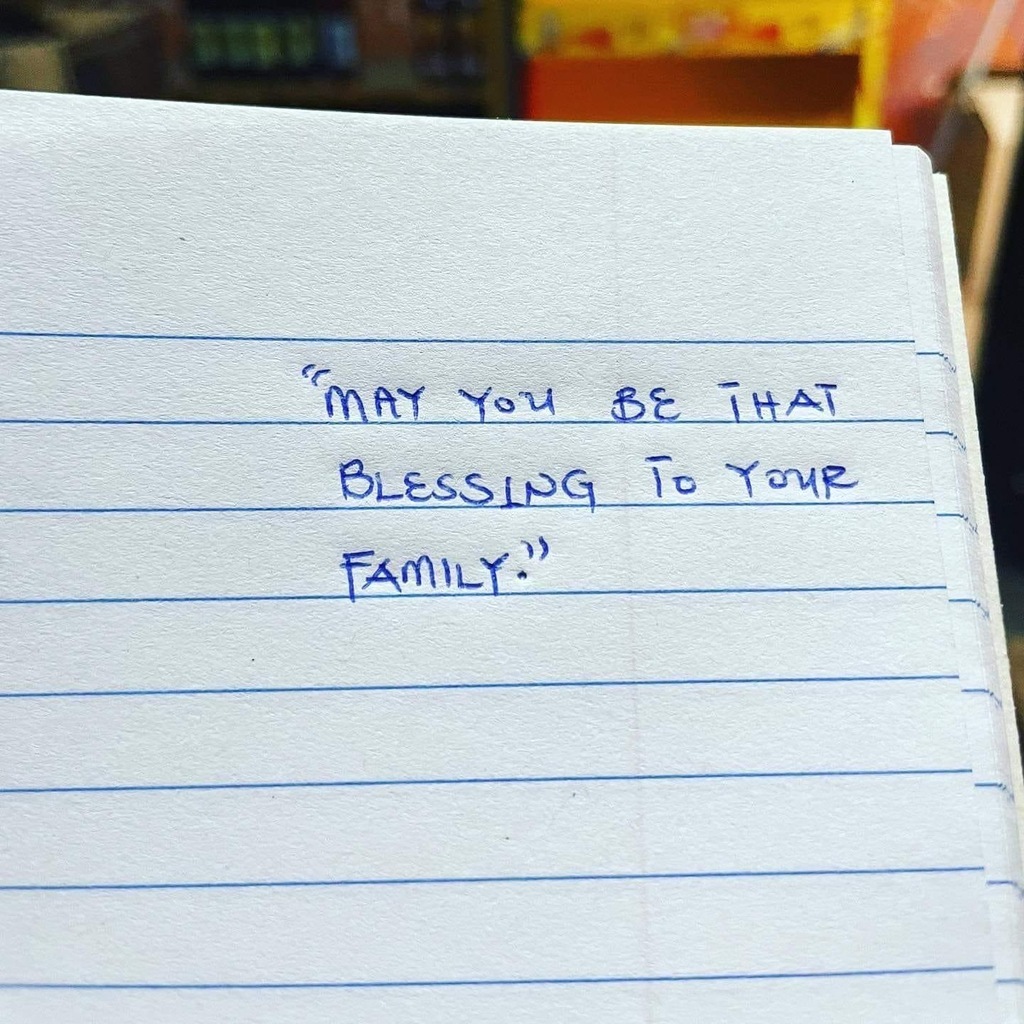 “MAY YOU BE THAT
BLESSING TO YOUR
FAMILY.”